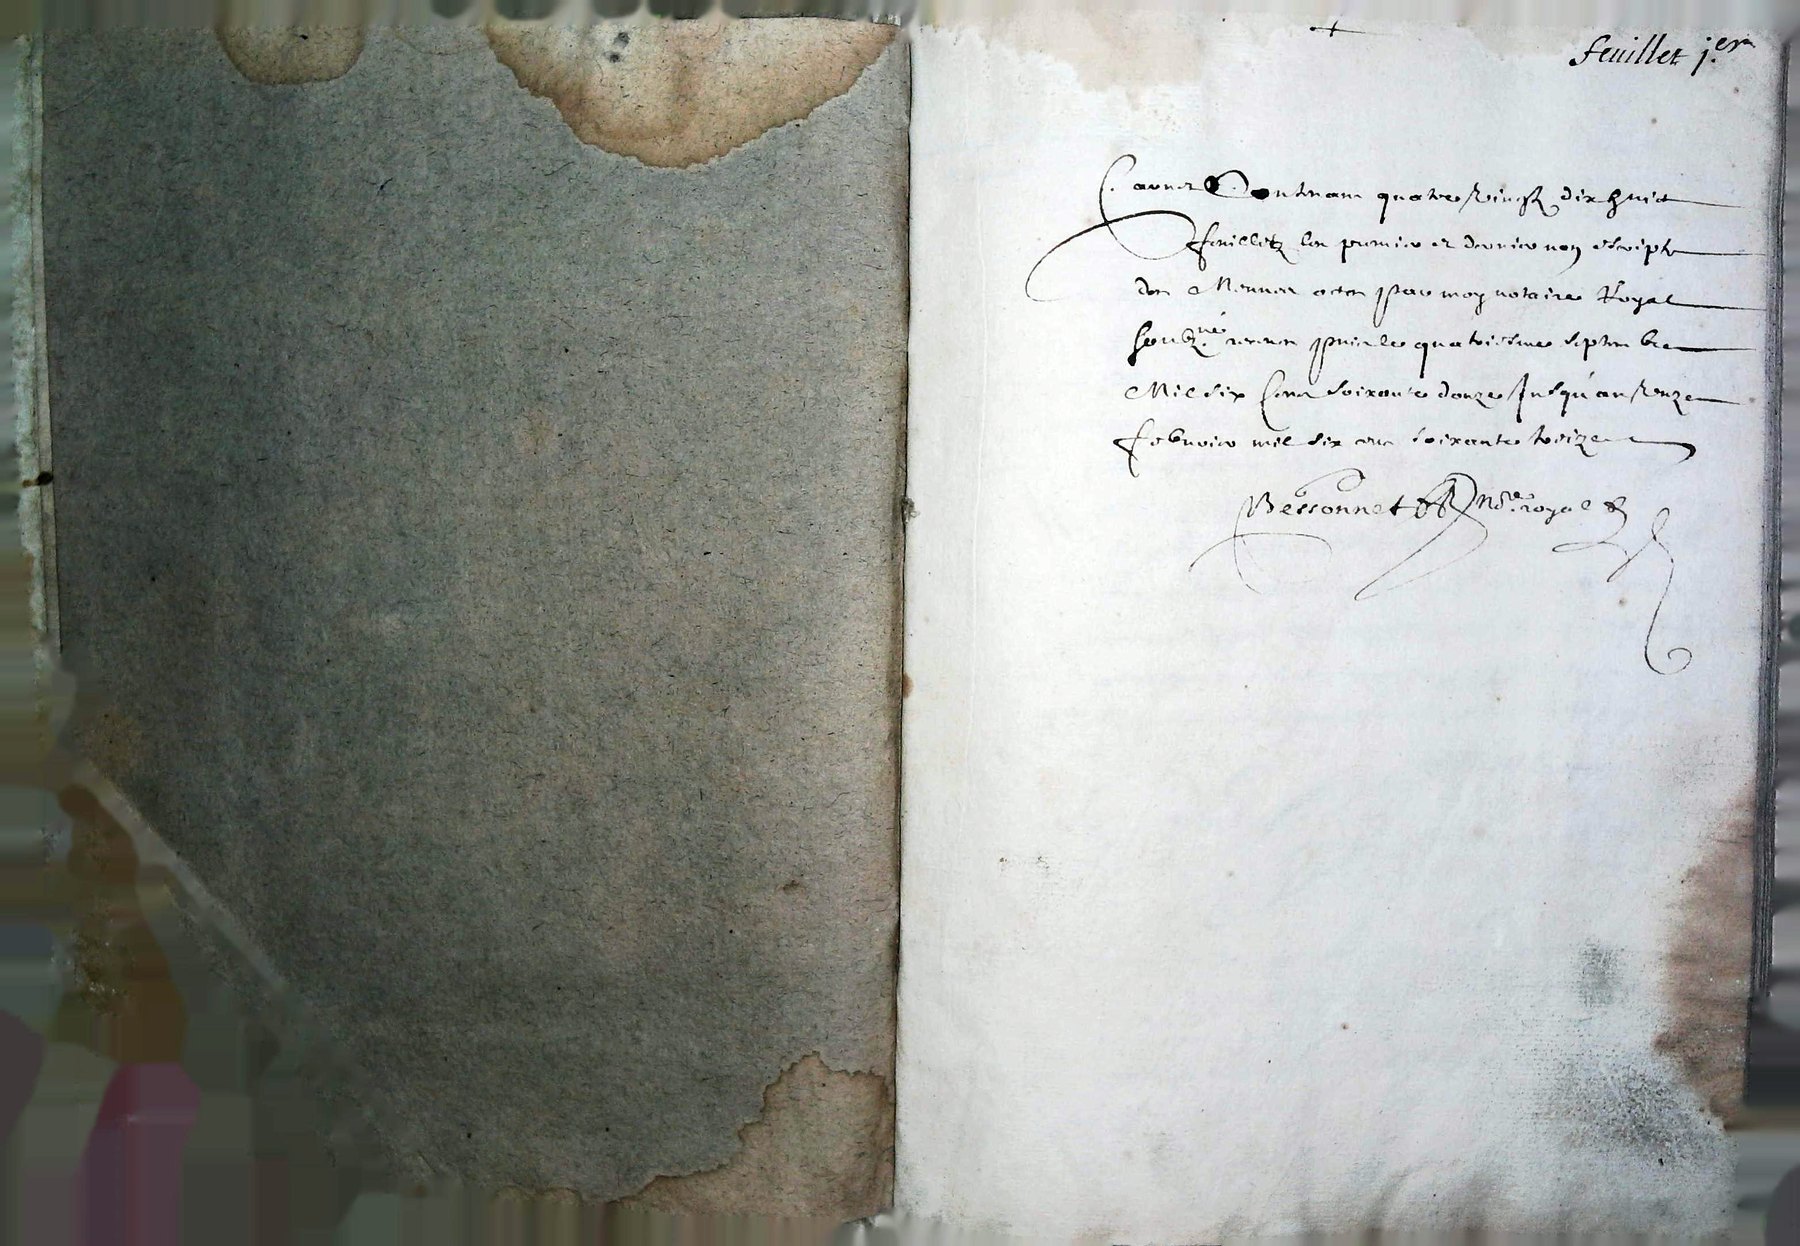 feuillet j.er
Carnet Contenant quatre vingtz dix huit
feuilletz les premier et dernier non escriptz
des Mennes actes par moy notaire Royal
soubz.né receus puis le quatriesme septembre
Mil six cent soixante douze Jusqu'au
febvrier mil six cent soixante treize
Bessonnet no.re royal